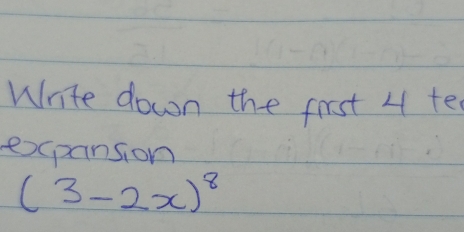 Write down the first 4
expansion
(3-2x)⁸